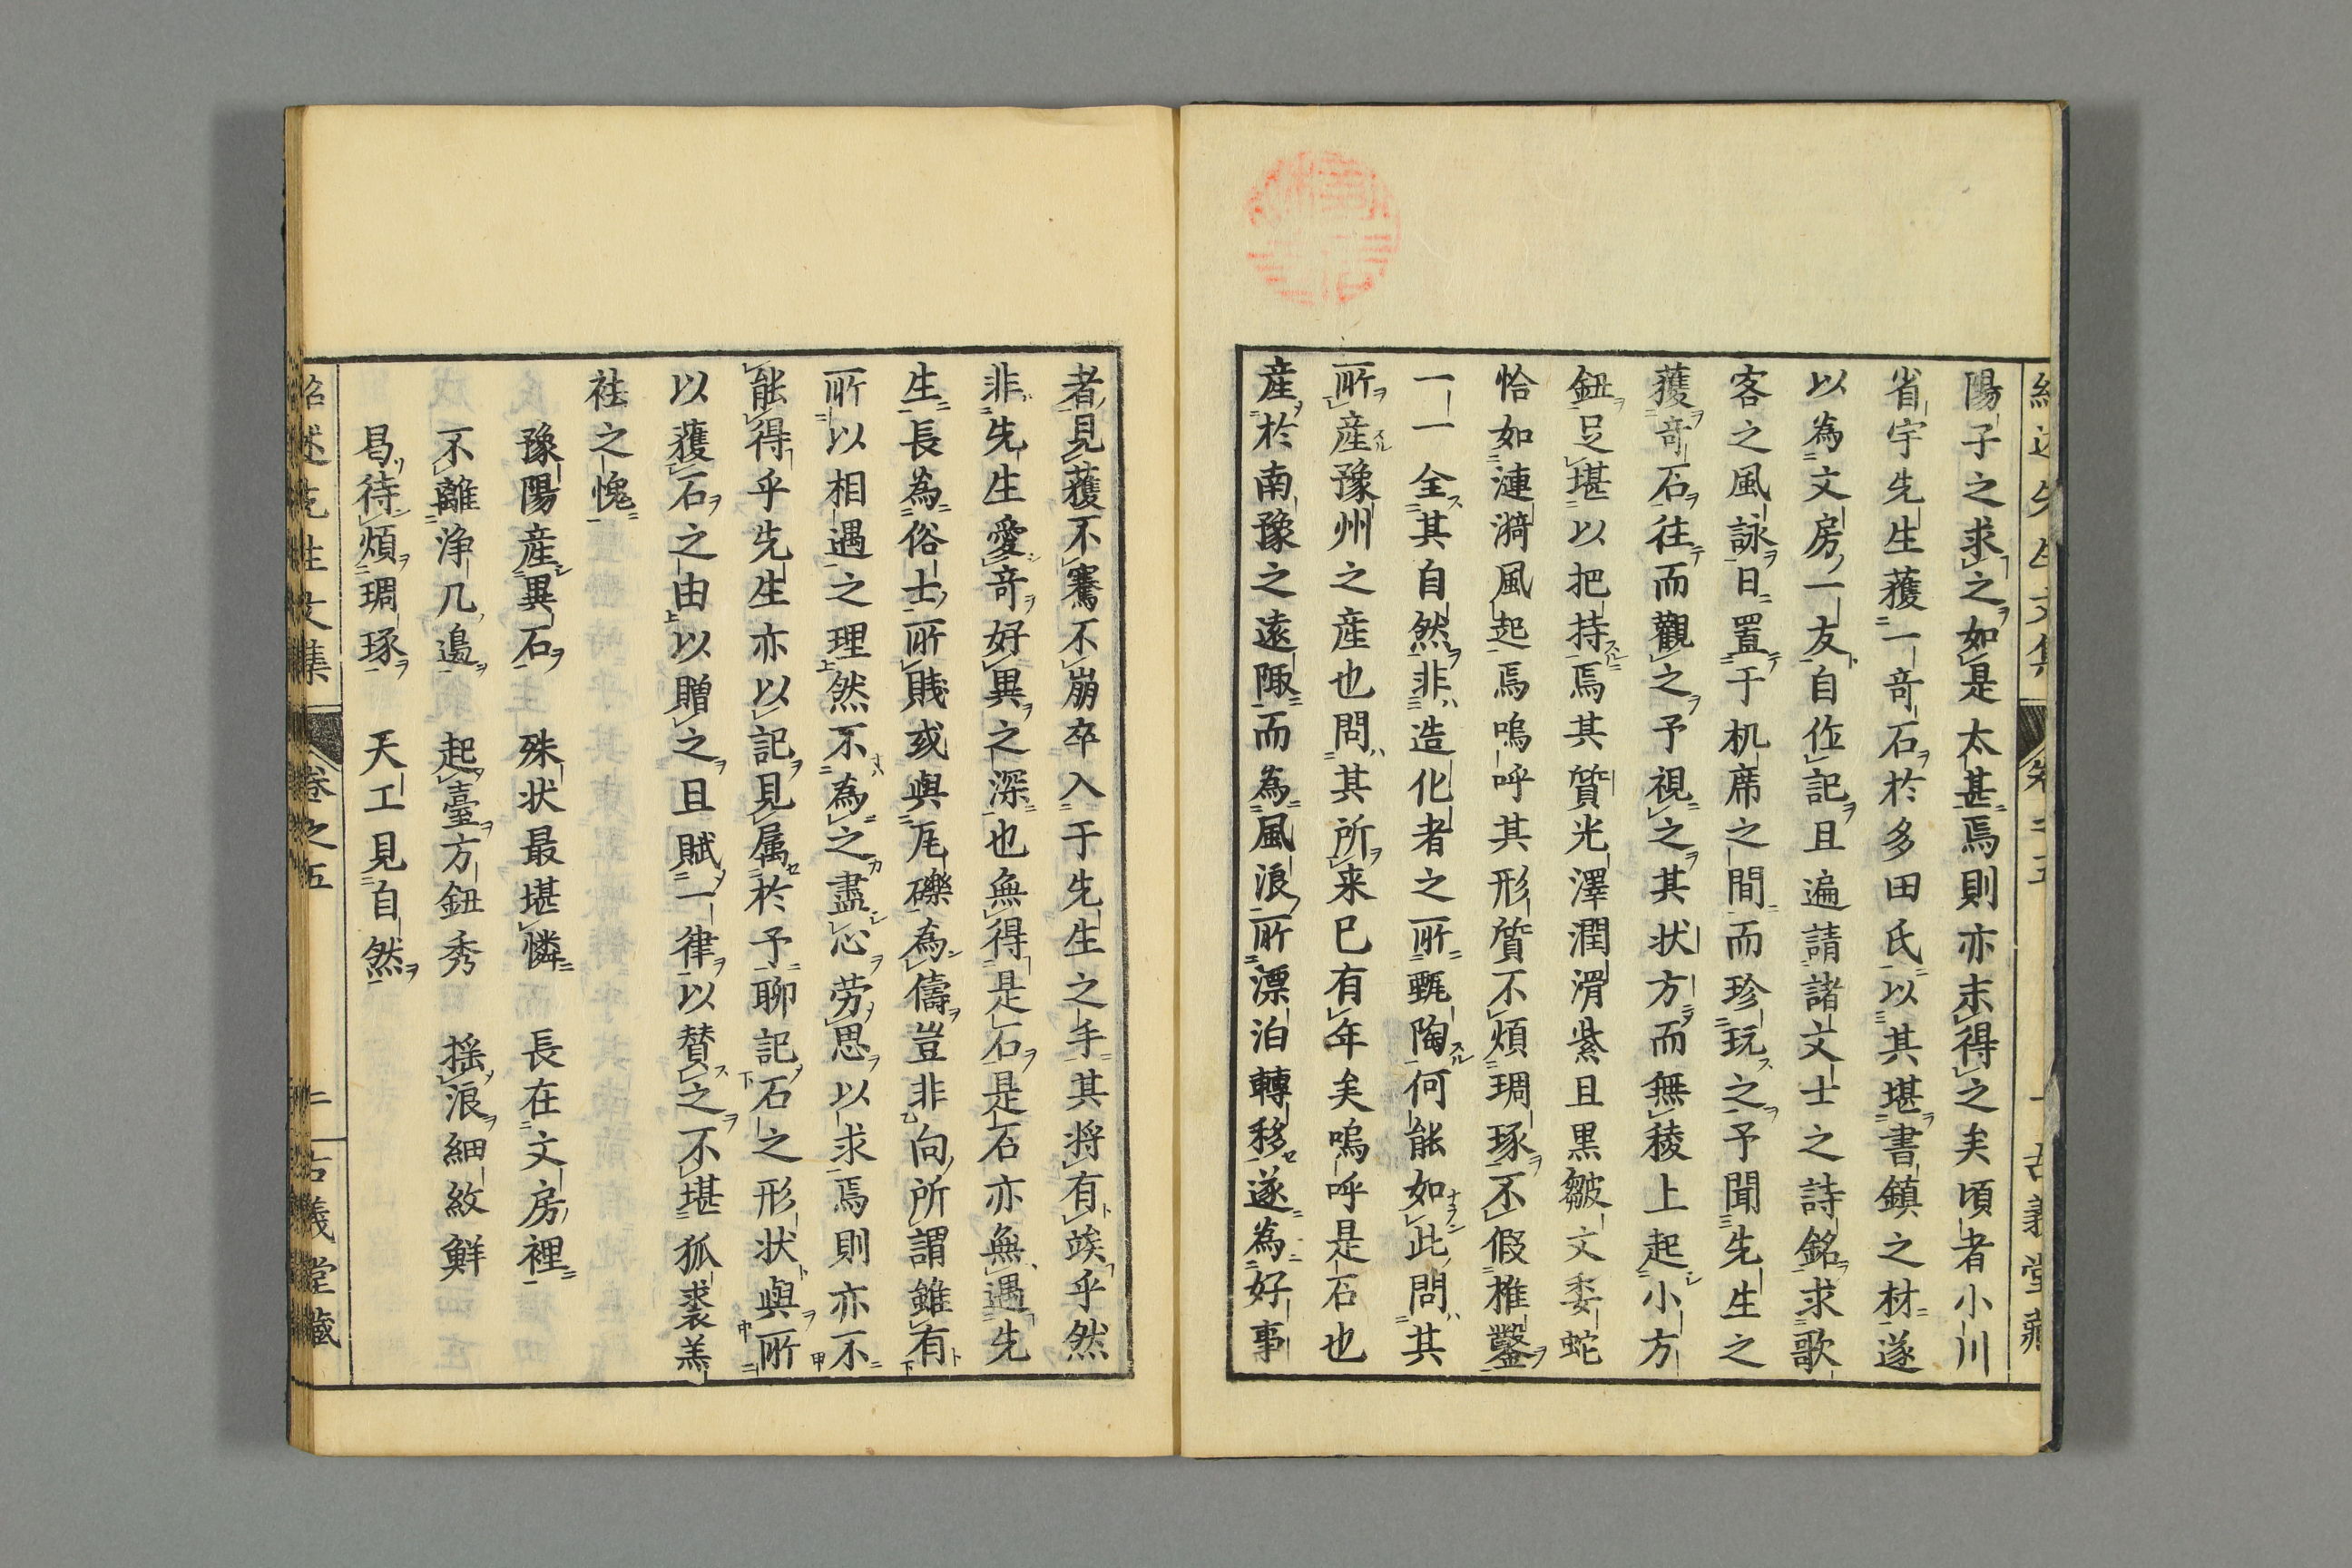 陽子之求之如是太甚焉則亦末得之矣頃者小川
省宇先生獲一奇石於多田氏以其堪書鎮之材遂
以為文房一友自作記且遍請諸文士之詩銘求歌
客之風詠日置于机席之間而珍玩之予聞先生之
獲奇石往而觀之予視之其状方而無稜上起小方
鈕足堪以把持焉其質光澤潤滑紫且黒皺文委蛇
恰如漣漪風起焉嗚呼其形質不煩琱琢不假椎鑿
一一全其自然非造化者之所甄陶何能如此問其
所產豫州之產也問其所来已有年矣嗚呼是石也
產於南豫之遠陬而為風浪所漂泊轉移遂為好事
者見獲不騫不崩卒入于先生之手其将有竢乎然
非先生愛奇好異之深也無得是石是石亦無遇先
生長為俗士所賤或與瓦礫為儔豈非向所謂雖有
所以相遇之理然不為之盡心劳思以求焉則亦不
能得乎先生亦以記見属於予聊記石之形状與所
以獲石之由以贈之且賦一律以賛之不堪狐裘羔
袪之愧
豫陽産異石 殊状最堪憐 長在文房裡
不離浄几邉 起臺方鈕秀 揺浪細紋鮮
曷待煩琱琢 天工見自然
紹述先生文集 卷之五 二 古義堂藏